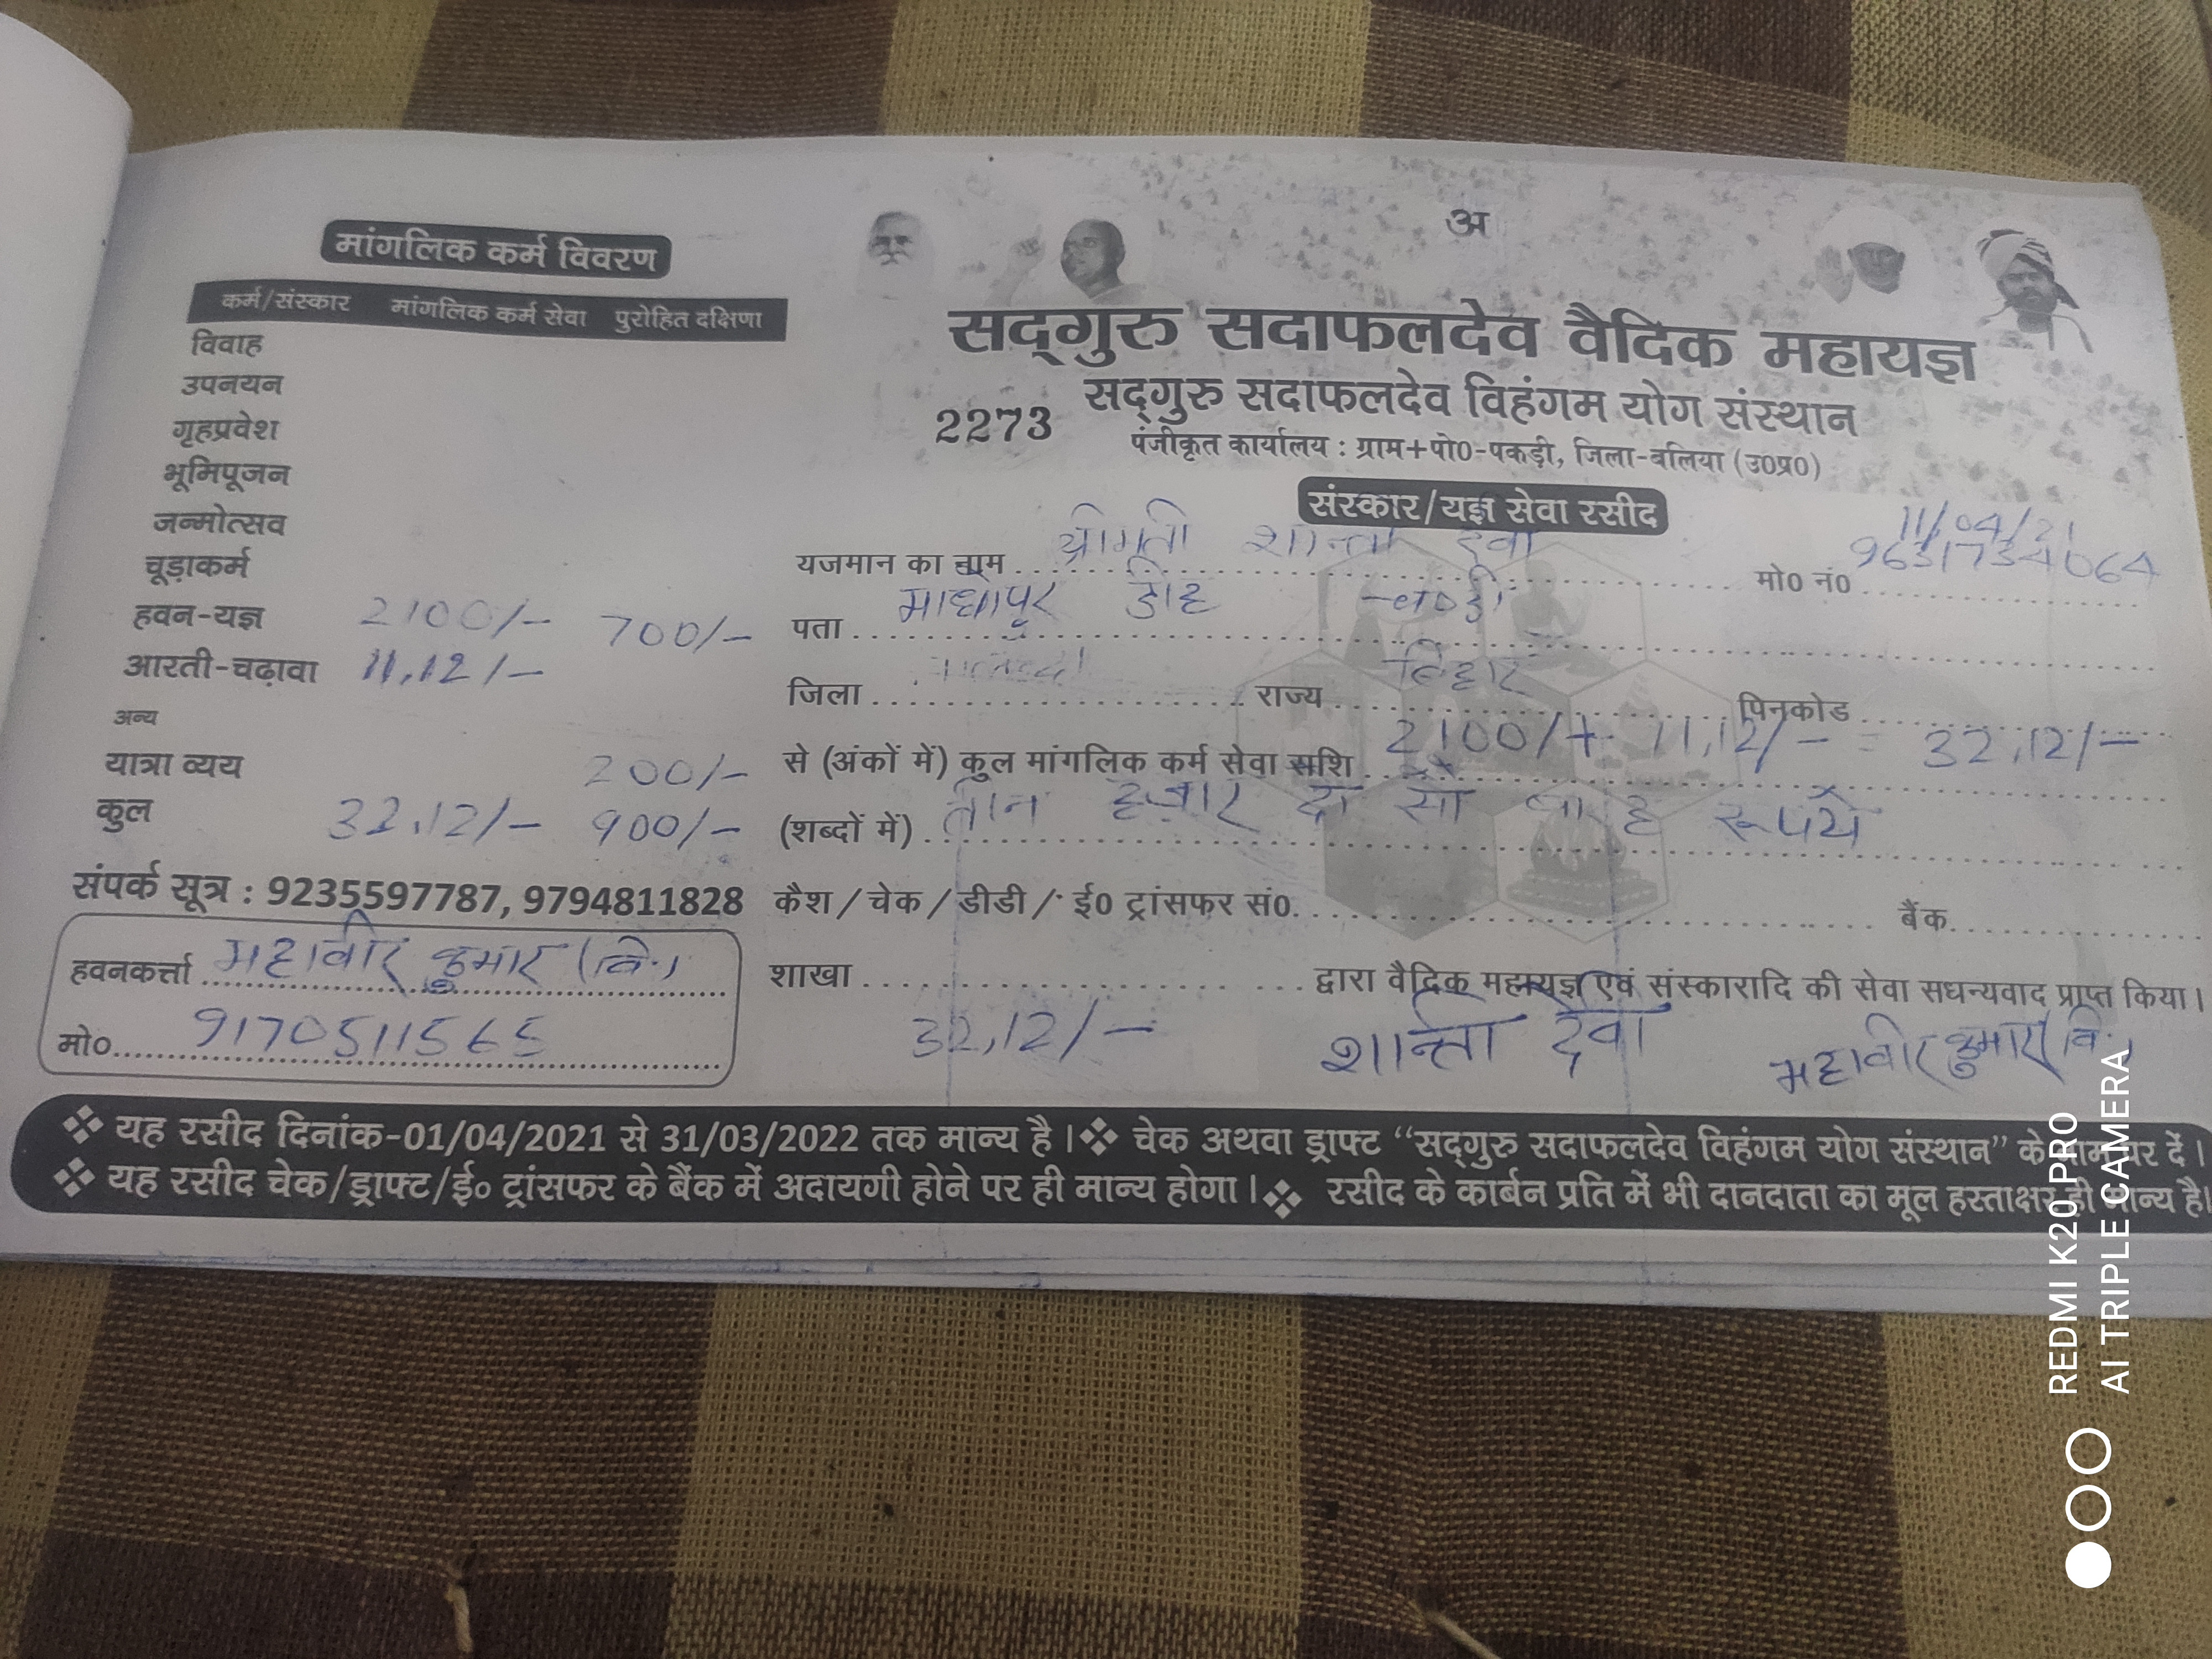 मांगलिक कर्म विवरण
कर्म/संस्कार मांगलिक कर्म सेवा पुरोहित दक्षिणा
विवाह
उपनयन
गृहप्रवेश
भूमिपूजन
जन्मोत्सव
चूड़ाकर्म
हवन-यज्ञ 2100/- 700/-
आरती-चढ़ावा 11,12/-
अन्य
यात्रा व्यय 200/-
कुल 32,12/- 900/-
संपर्क सूत्र : 9235597787, 9794811828
हवनकर्त्ता महावीर कुमार (वि.)
मो० 9170511565
अ
सद्गुरु सदाफलदेव वैदिक महायज्ञ
सद्गुरु सदाफलदेव विहंगम योग संस्थान
2273
पंजीकृत कार्यालय : ग्राम+पो0-पकड़ी, जिला-बलिया (उ0प्र0)
संस्कार/यज्ञ सेवा रसीद
11/04/21
यजमान का नाम श्रीमती शान्ती देवी मो0 नं0 9631734064
पता माधोपुर डीह चण्डी
जिला राज्य बिहार पिनकोड
से (अंकों में) कुल मांगलिक कर्म सेवा राशि 2100/+ 11,12/- = 32,12/-
(शब्दों में) तीन हजार दो सौ बारह रूपये
कैश/चेक/डीडी/ ई0 ट्रांसफर सं0. बैंक
शाखा द्वारा वैदिक महायज्ञ एवं संस्कारादि की सेवा सधन्यवाद प्राप्त किया।
32,12/- शान्ती देवी महावीर कुमार (वि.)
❖ यह रसीद दिनांक-01/04/2021 से 31/03/2022 तक मान्य है। ❖ चेक अथवा ड्राफ्ट “सद्गुरु सदाफलदेव विहंगम योग संस्थान” के नाम पर दें।
❖ यह रसीद चेक/ड्राफ्ट/ई० ट्रांसफर के बैंक में अदायगी होने पर ही मान्य होगा। ❖ रसीद के कार्बन प्रति में भी दानदाता का मूल हस्ताक्षर ही मान्य है।
REDMI K20 PRO
AI TRIPLE CAMERA